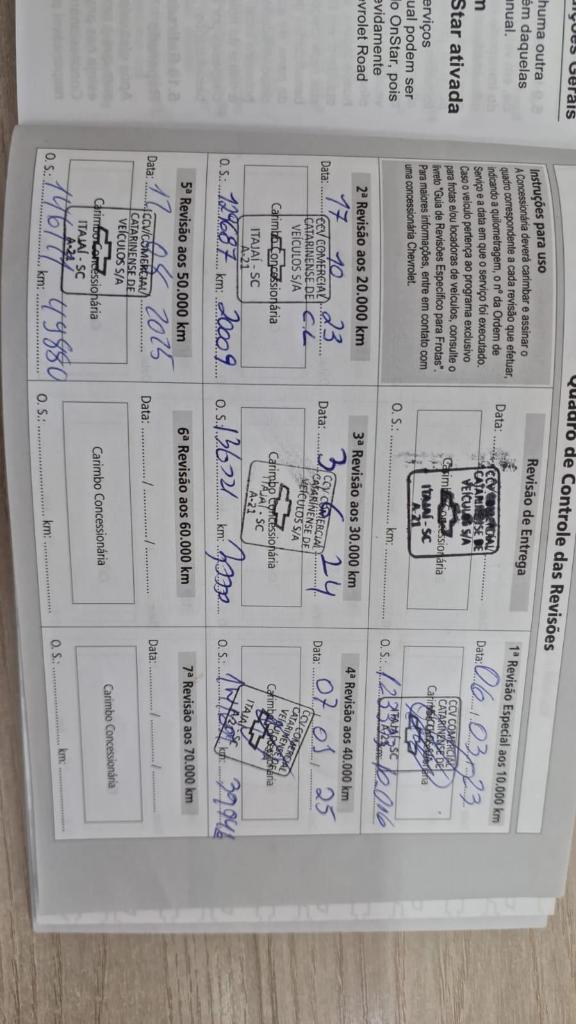 ções Gerais
huma outra
ém daquelas
anual.
m
Star ativada
erviços
ual podem ser
lo OnStar, pois
evidamente
evrolet Road
Quadro de Controle das Revisões
Instruções para uso
A Concessionária deverá carimbar e assinar o
quadro correspondente a cada revisão que efetuar,
indicando a quilometragem, o nº da Ordem de
Serviço e a data em que o serviço foi executado.
Caso o veículo pertença ao programa exclusivo
para frotas e/ou locadoras de veículos, consulte o
livreto "Guia de Revisões Específico para Frotas".
Para maiores informações, entre em contato com
uma concessionária Chevrolet.
Revisão de Entrega
Data:
CCV COMERCIAL
CATARINENSE DE
VEÍCULOS S/A
Carimbo Concessionária
ITAJAÍ - SC
A-21
O. S.: km:
1ª Revisão Especial aos 10.000 km
Data: 06 / 03 / 23
CCV COMERCIAL
CATARINENSE DE
Carimbo Concessionária
ITAJAÍ - SC
A-21
O. S.:
2ª Revisão aos 20.000 km
Data: 17 10 23
CCV COMERCIAL
CATARINENSE DE
VEÍCULOS S/A
Carimbo Concessionária
ITAJAÍ - SC
A-21
O. S.: 129687 km: 20009
3ª Revisão aos 30.000 km
Data: 3 6 24
CCV COMERCIAL
CATARINENSE DE
VEÍCULOS S/A
Carimbo Concessionária
ITAJAÍ - SC
A-21
O. S.: 136721
4ª Revisão aos 40.000 km
Data: 07 / 01 / 25
CCV COMERCIAL
CATARINENSE DE
VEÍCULOS S/A
Carimbo Concessionária
ITAJAÍ
A-21
O. S.: km: 39946
5ª Revisão aos 50.000 km
Data: 2025
CCV COMERCIAL
CATARINENSE DE
VEÍCULOS S/A
Carimbo Concessionária
ITAJAÍ - SC
A-21
O. S.: km: 49880
6ª Revisão aos 60.000 km
Data: / /
Carimbo Concessionária
O. S.: km:
7ª Revisão aos 70.000 km
Data: / /
Carimbo Concessionária
O. S.: km: